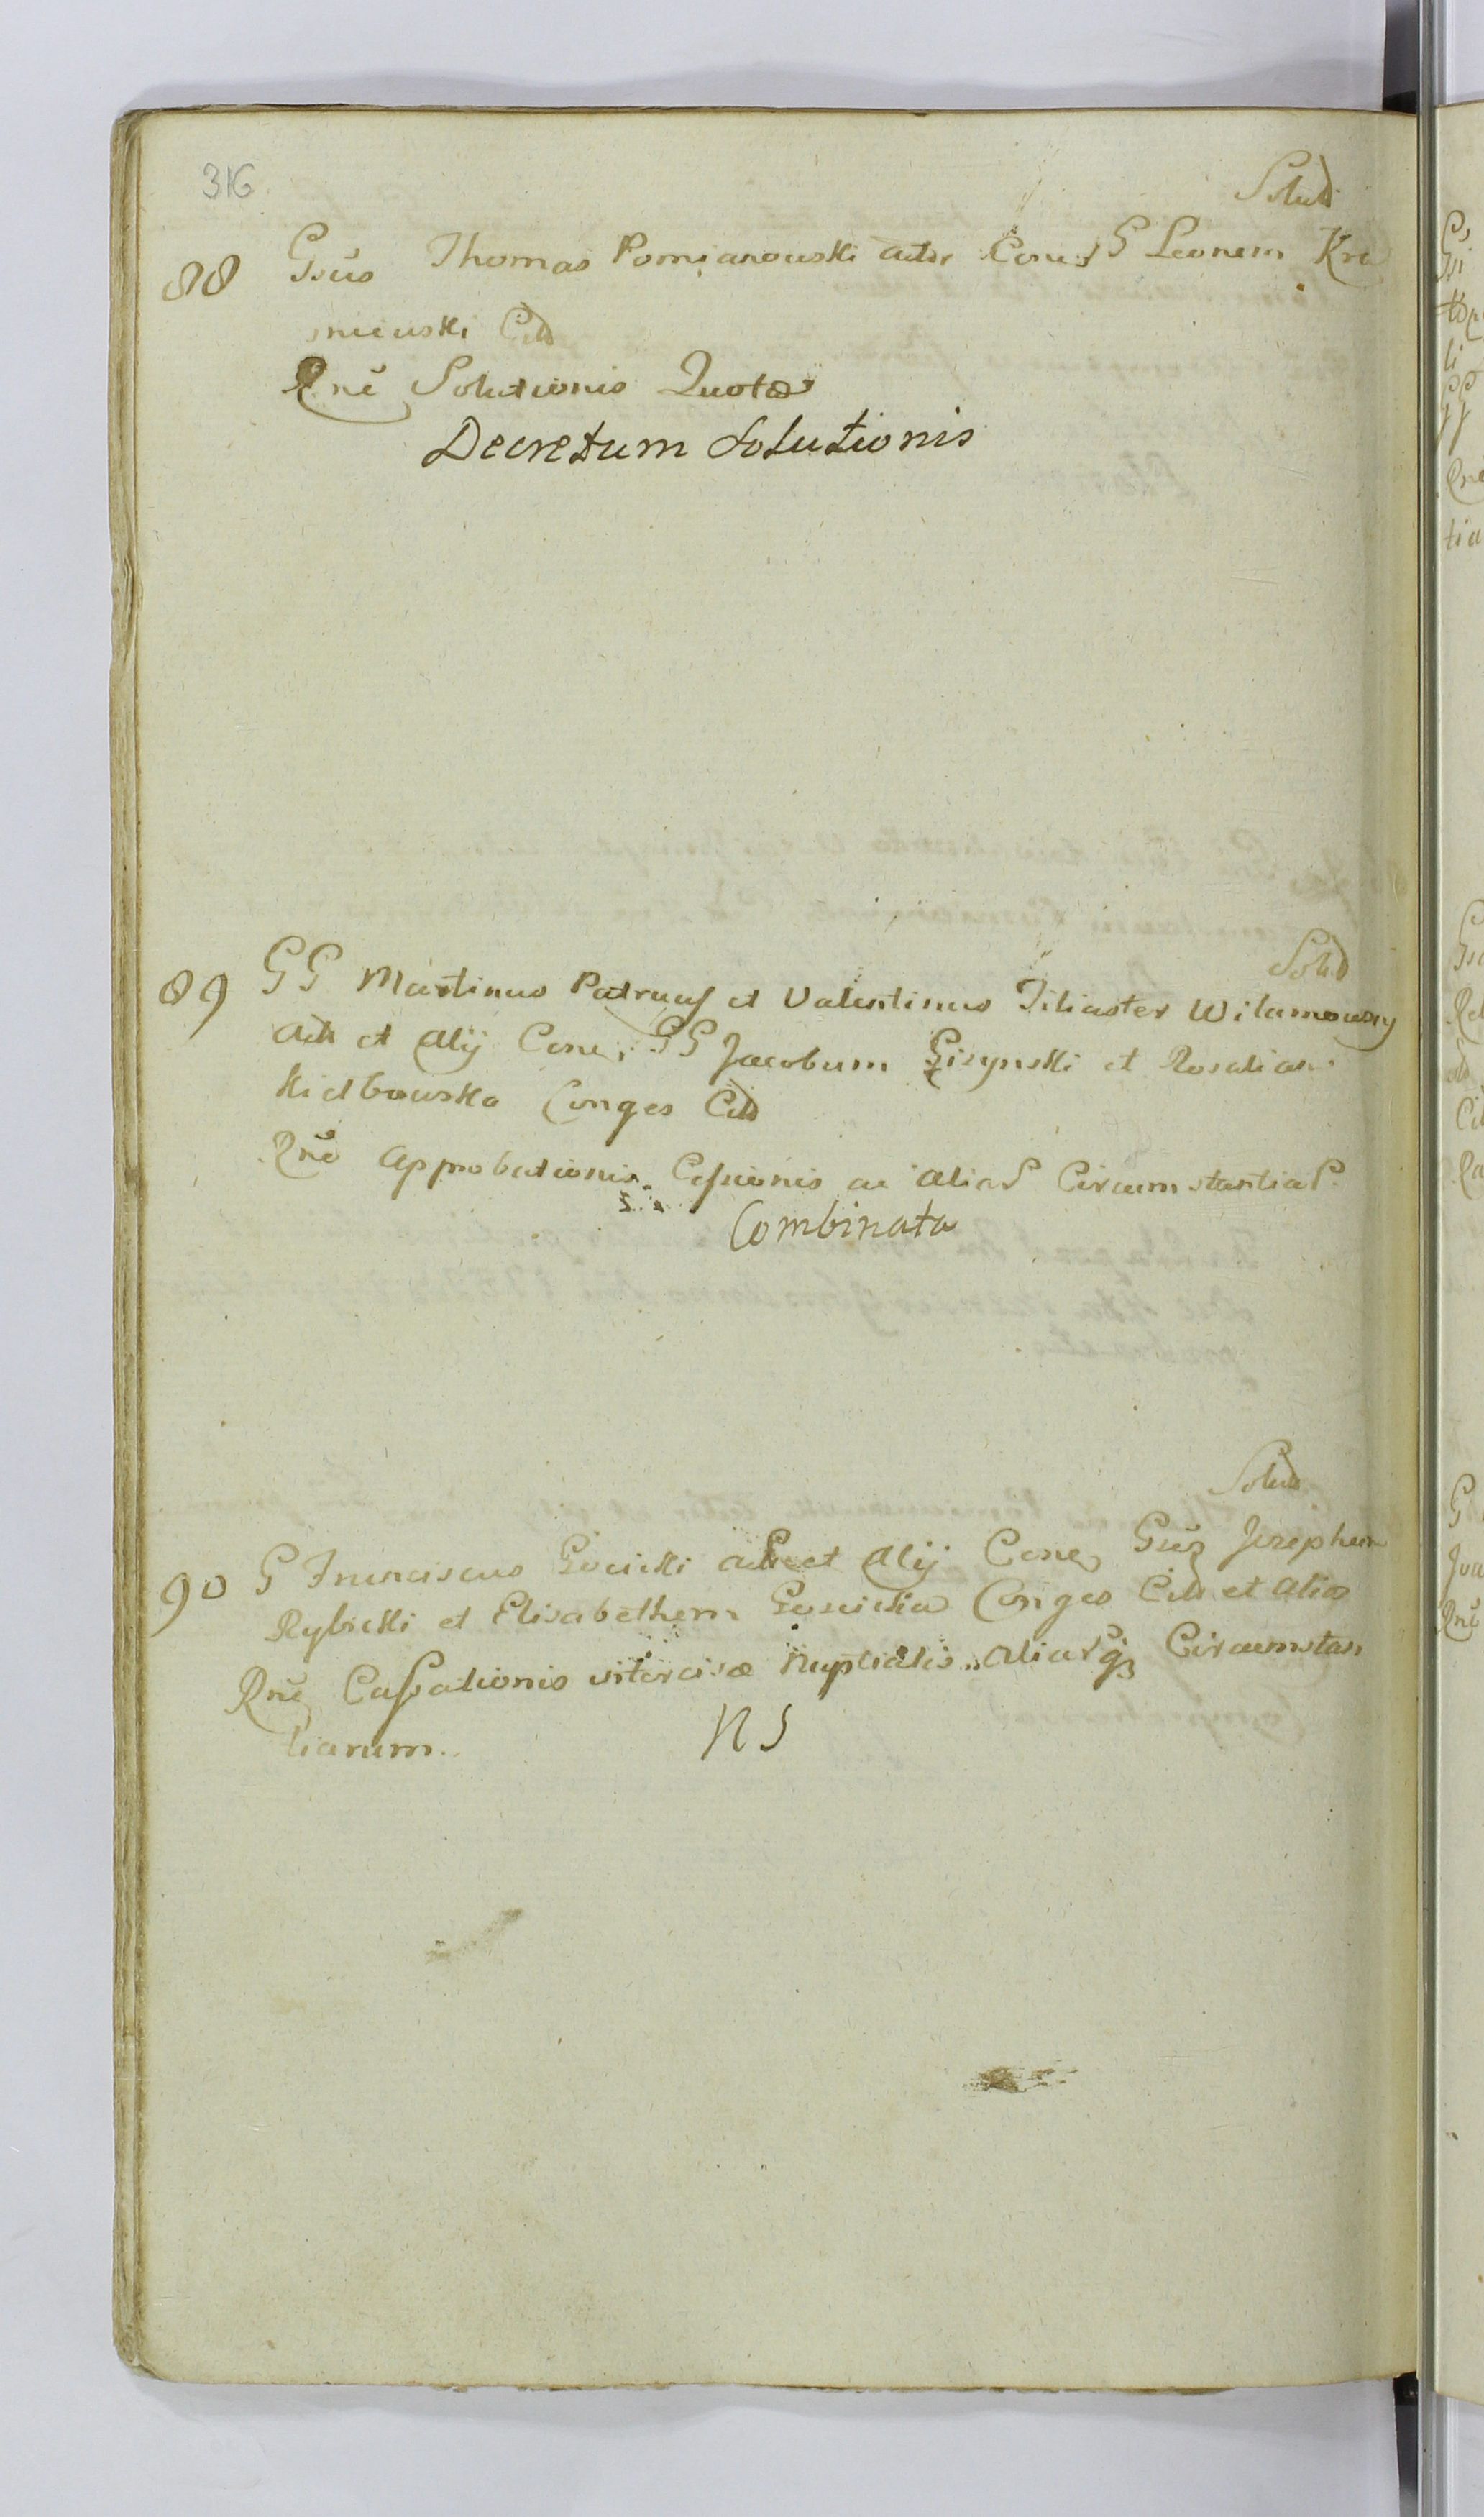 316
Solut
88 Gsus Thomas Pomianowski Actor Cone G Leonem Kra
sniewski Citt
Rne Solutionis Quotæ
Decretum Solutionis
Solut
89 GG Martinus Patruus et Valentinus Filiaster Wilamowscy
Act et Alij Cone GG Jacobum Gizynski et Rosaliam
Kielbowska Conges Citt
Rne Approbationis Cessionis ac aliar Circumstantiar
Combinata
Solut
90 G Franciscus Gocicki Act et Alij Cone Gsu Josephum
Rybicki et Elisabetham Goscicka Conges Citt et alios
Rne Cassationis intercisæ Nuptialis aliarq Circumstan
tiarum
NS